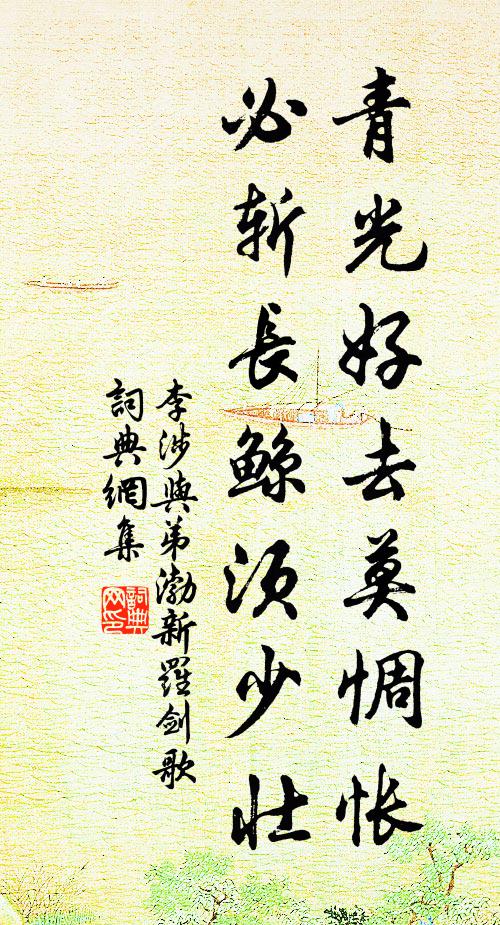 青光好去莫惆怅
必斩長鲸须少壮
李涉與弟渤新羅剑歌
詞典網集
詞典网印